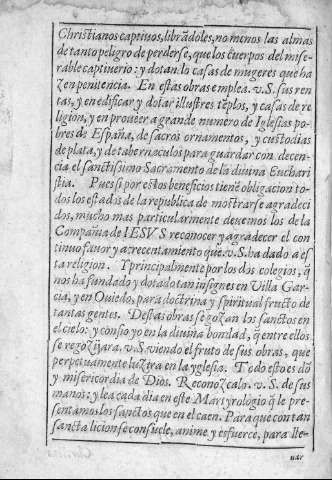 Christianos captiuos, librãdoles, no menos las almas
de tanto peligro de perderse, que los cuerpos del mise-
rable captiuerio: y dotan lo casas de mugeres que ha
zen penitencia. En estas obras emplea. v. S. sus ren
tas, y en edificar y dotar illustres tẽplos, y casas de re
ligion, y en proueer a grande numero de Iglesias po-
bres de España, de sacros ornamentos, y custodias
de plata, y de tabernaculos para guardar con decen-
cia el sanctissimo Sacramento de la diuina Euchari
stia. Pues si por estos beneficios tiene obligacion to-
dos los estados de la republica de mostrarse agradeci
dos, mucho mas particularmente deuemos los de la
Compañia de IESVS reconocer y agradecer el con
tinuo fauor y acrecentamiento que. v. S. ha dado a es
ta religion. Y principalmente por los dos colegios, q̃
nos ha fundado y dotado tan insignes en Villa Gar-
cia, y en Ouiedo, para doctrina y spiritual fructo de
tantas gentes. Destas obras se gozan los sanctos en
el cielo: y confio yo en la diuina bondad, q̃ entre ellos
se regozijara. v. S. viendo el fruto de sus obras, que
perpetuamente luzira en la yglesia. Todo esto es dõ
y misericordia de Dios. Reconozcalo. v. S. de sus
manos: y lea cada dia en este Martyrologio q̃ le pre-
sentamos los sanctos que en el caen. Para que con tan
sancta licion se consuele, anime, y esfuerce, para lle-
uar